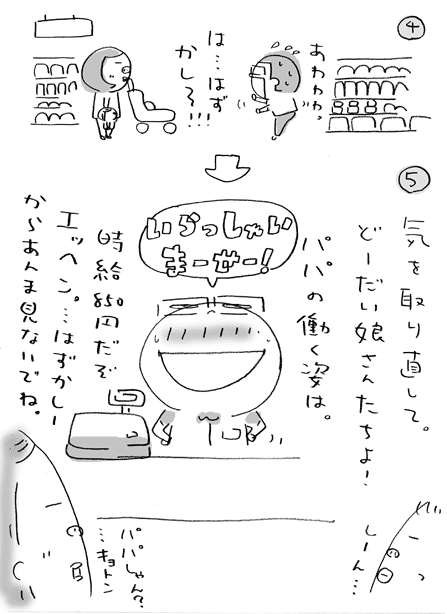 ④
あわわわ。
は…はず
かしー!!!
⑤
気を取り直して。
どーだい娘さんたちよ!
パパの働く姿は。
いらっしゃい
まーせー!
時給850円だぞ
エッヘン。…はずかしー
からあんま見ないでね。
しーん…
パパしゃん?
…キョトン